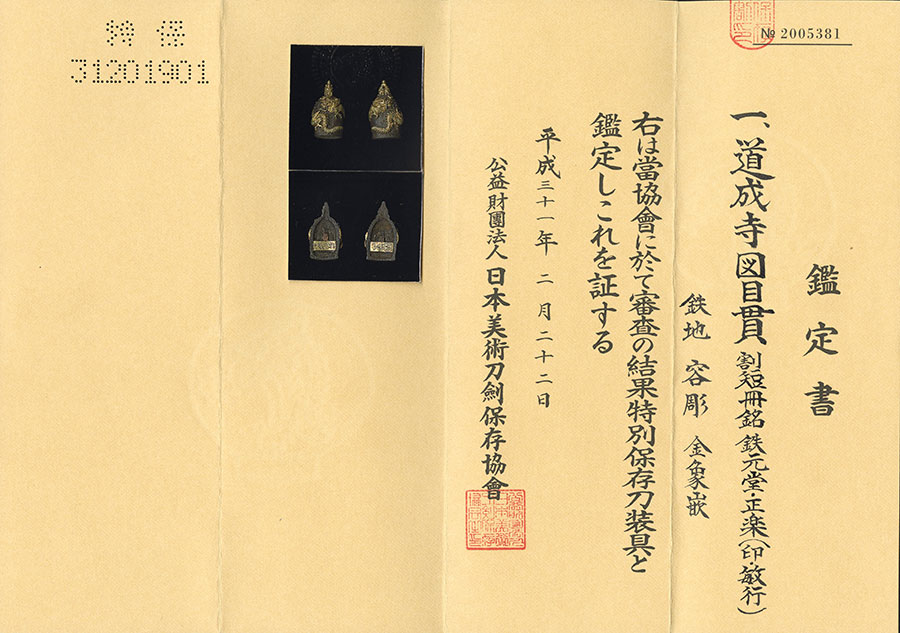 № 2005381
鑑定書
一、道成寺図目貫 割短冊銘 鉄元堂・正楽(印・敏行)
鉄地 容彫 金象嵌
右は當協會に於て審査の結果特別保存刀装具と
鑑定しこれを証する
平成三十一年二月二十二日
公益財團法人 日本美術刀剣保存協會
特保
31201901